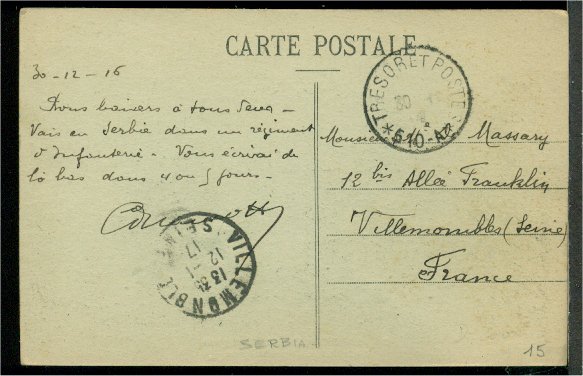 CARTE POSTALE
30-12-16
Bons baisers à tous deux -
Vais en Serbie dans un régiment
d'Infanterie - Vous écrirai de
là bas dans 4 ou 5 jours -
TRESOR ET POSTES
30
*510-A*
Monsieur Massary
12 bis Allée Franklin
Villemombles (Seine)
France
VILLEMOMBLE
SEINE
13 35
12 -1
17
SERBIA
15